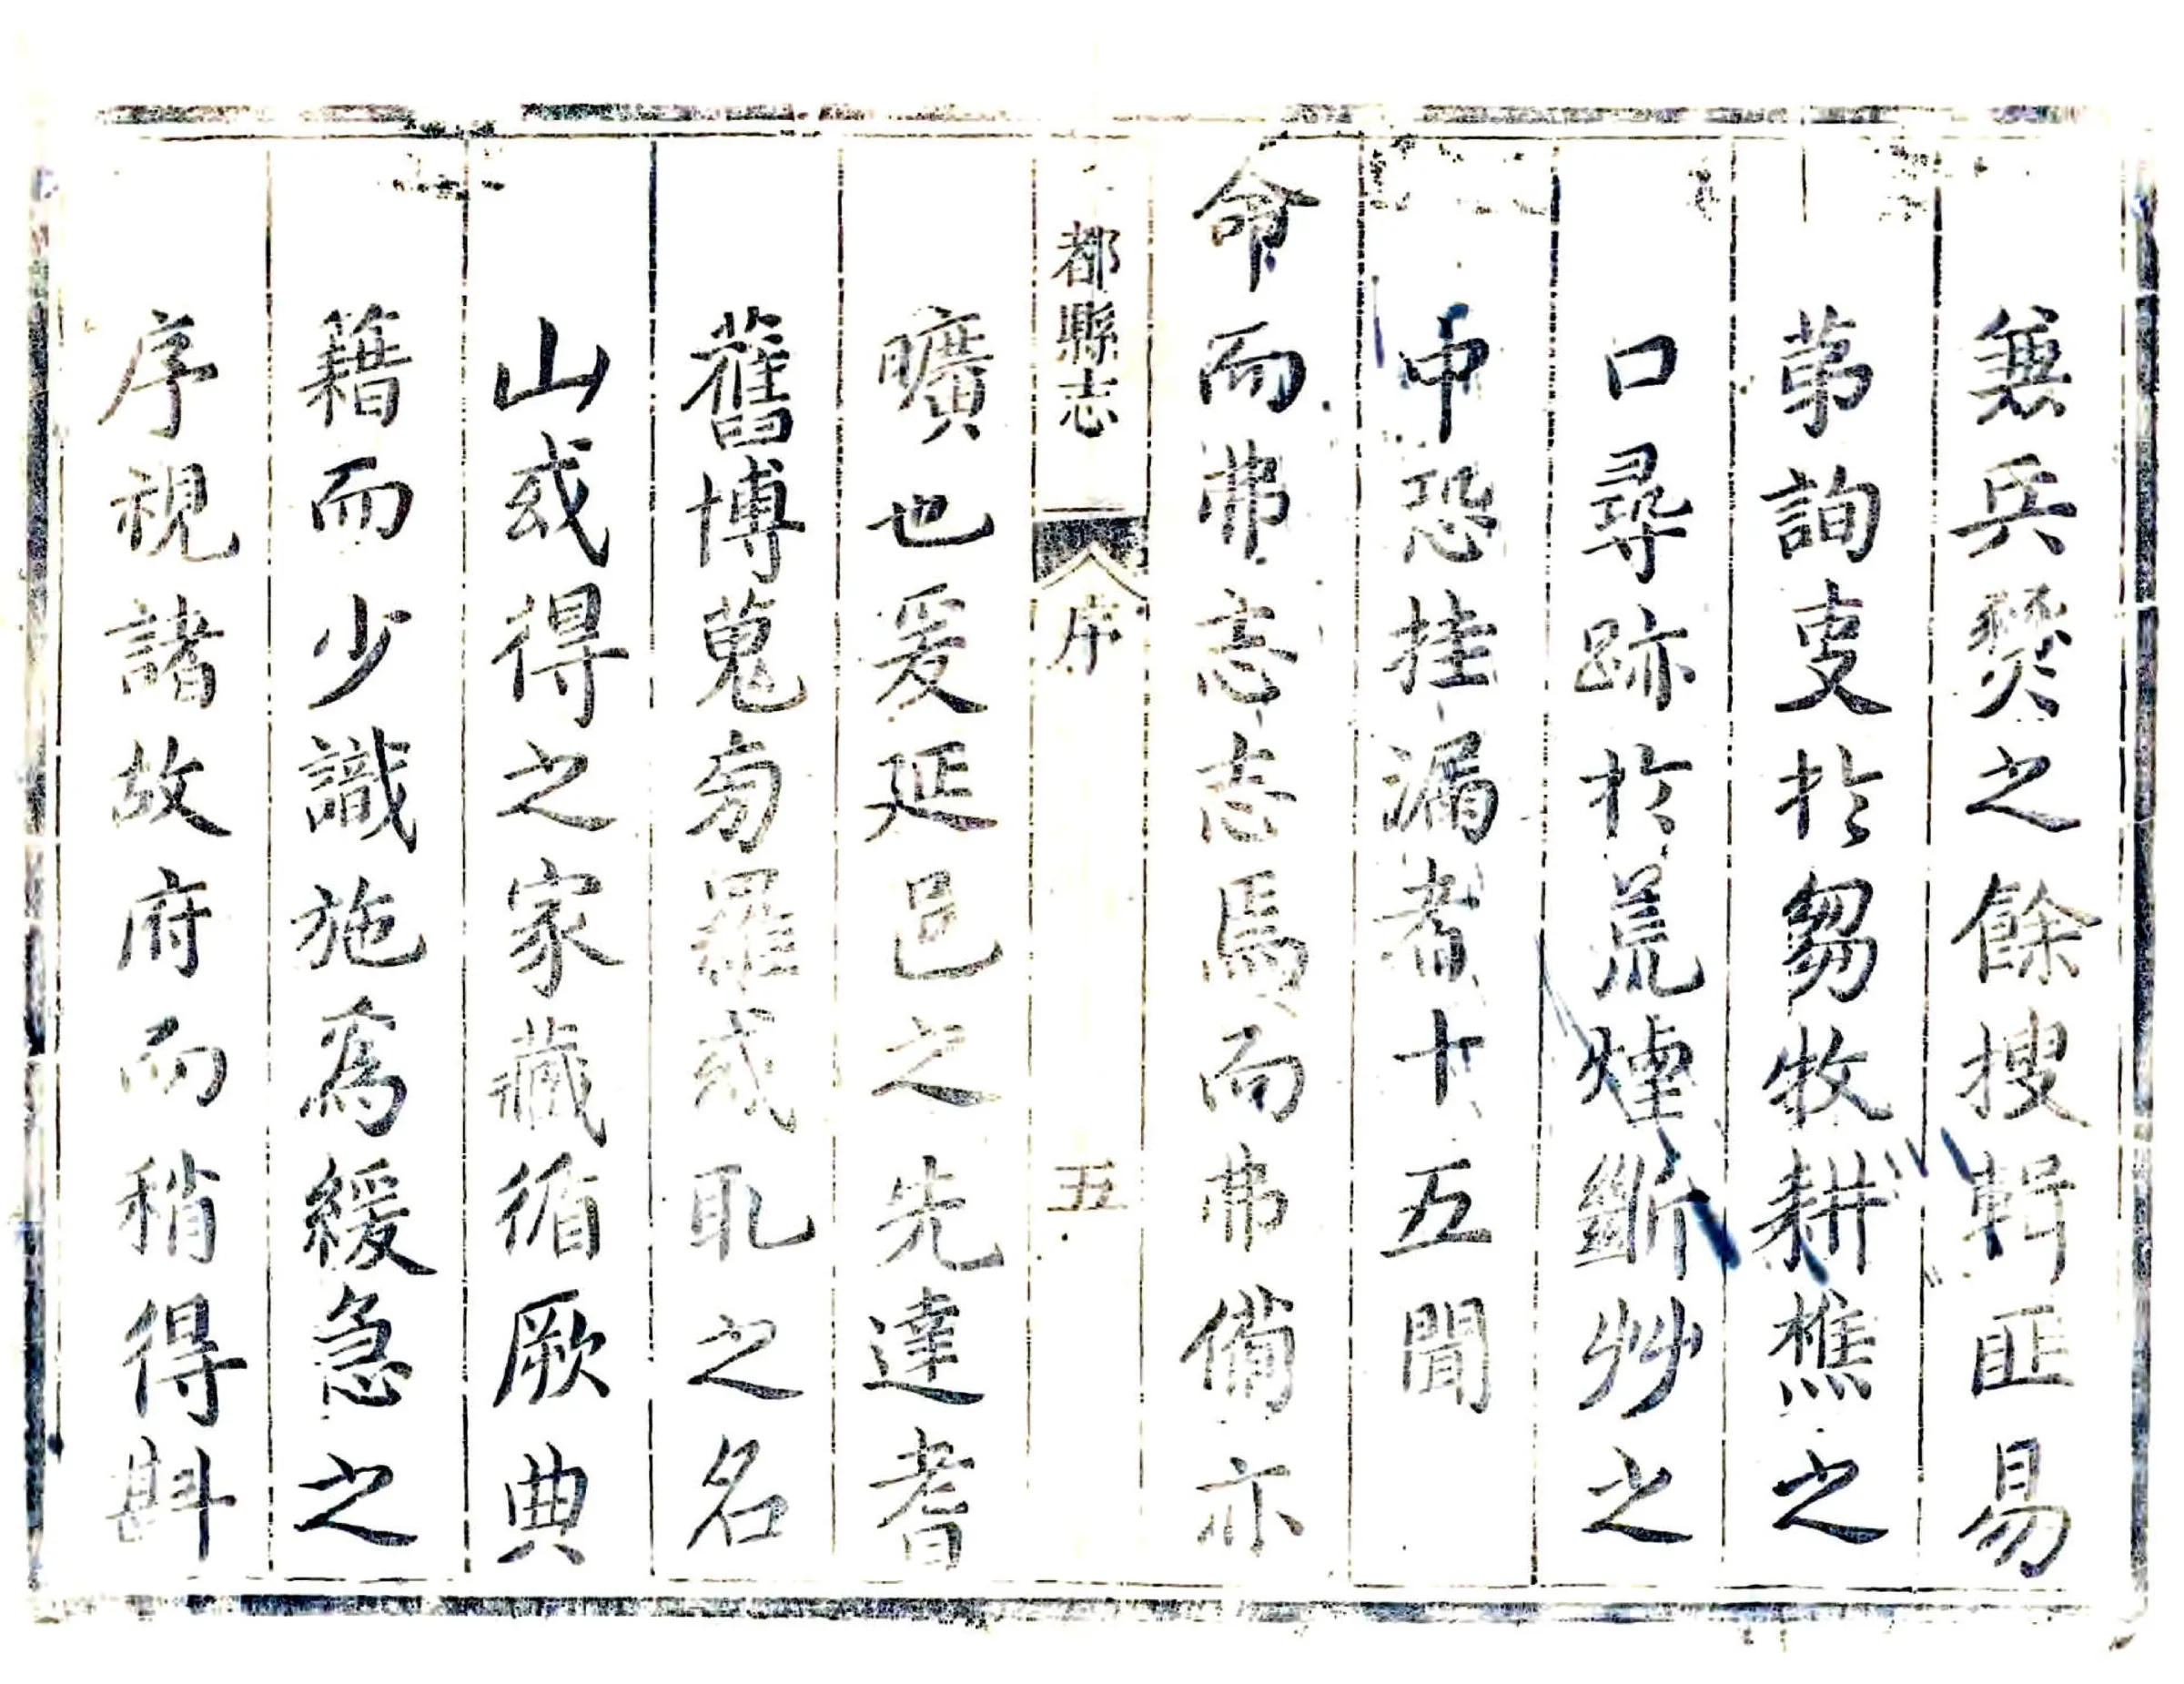 兼兵燹之餘搜輯匪易
苐詢叓扵芻牧耕樵之
口尋跡扵荒煙斷艸之
中恐挂漏者十五聞
命而弗志志焉而弗備亦
都縣志 序 五
曠也爰延邑之先達耆
舊博蒐旁羅或取之名
山或得之家藏循厥典
籍而少識施爲緩急之
序視諸故府而稍得斟